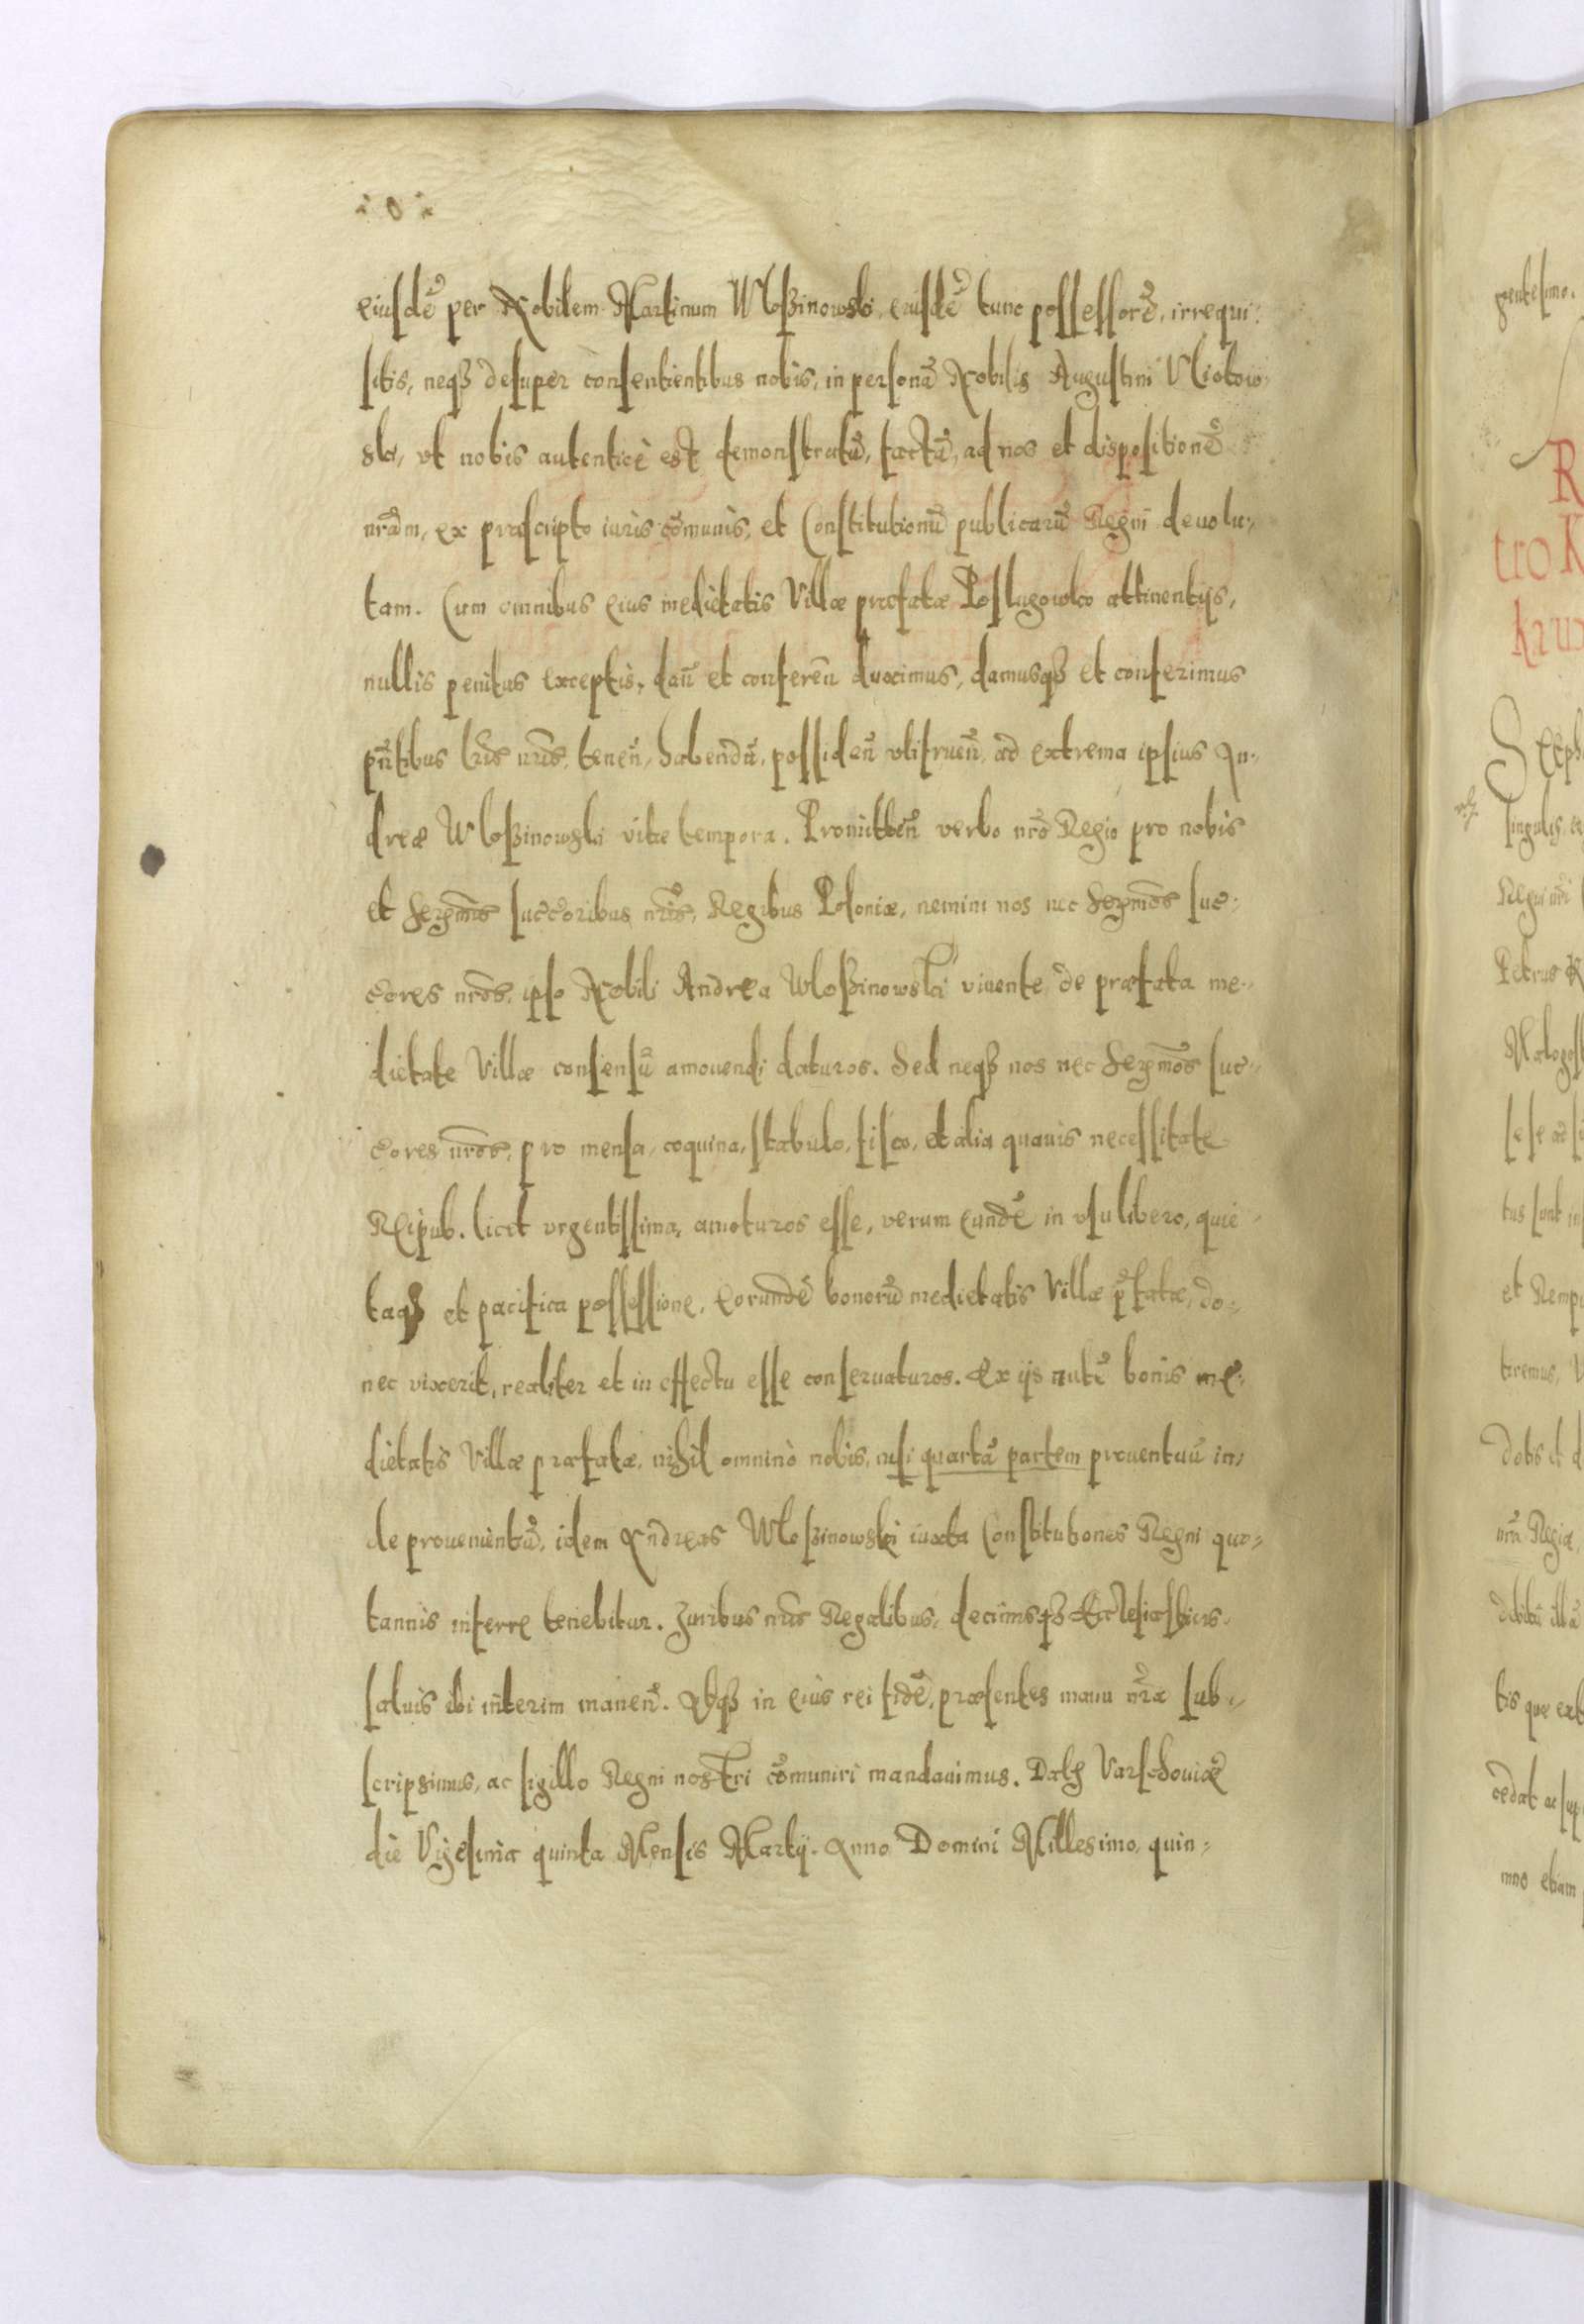 eiusdẽ per Nobilem Martinum Wloßinowski, eiusdẽ tunc possessorẽ, irrequi-
sitis, neqʒ desuper consentientibus nobis, in personã Nobilis Augustini Uliotow-
ski, vt nobis autenticè est demonstratũ, factã, ad nos et dispositionẽ
nrãm, ex præscripto iuris cõmunis, et Constitutionũ publicarũ Regni deuolu-
tam. Cum omnibus eius medietatis Villæ præfatæ Poslugowko attinentijs,
nullis penitus exceptis, dañ et conferẽn duximus, damusqʒ et conferimus
pñtibus lris nris, teneñ, habendũ, possideñ vtifrueñ, ad extrema ipsius An-
dreæ Wloßinowski vitæ tempora. Promitteñ verbo nrõ Regio pro nobis
et Serꝫmis succoribus nris, Regibus Poloniæ, nemini nos nec Serꝫmos suc-
cores nros, ipso Nobili Andrea Wloßinowski viuente, de præfata me-
dietate Villæ consensũ amouendi daturos. Sed neqʒ nos nec Serꝫmos suc-
cores nros, pro mensa, coquina, stabulo, fisco, et alia quauis necessitate
Reipub. licet vrgentissima, amoturos esse, verum eundẽ in vsu libero, quie-
taqʒ et pacifica possessione, eorundẽ bonorũ medietatis Villæ p̃fatæ, do-
nec vixerit, realiter et in effectu esse conseruaturos. Ex ijs autẽ bonis me-
dietatis Villæ præfatæ, nihil omnino nobis, nisi quartã partem prouentuũ in-
de prouenientũ, idem Andreas Wloßinowski iuxta Constitutiones Regni quo-
tannis inferre tenebitur. Juribus nris Regalibus, decimisqʒ Ecclesiasticis
saluis ibi interim maneñ. Atqʒ in eius rei fidẽ, præsentes manu nr̃a sub-
scripsimus, ac sigillo Regni nostri cõmuniri mandauimus. Datʒ Varschouiæ
die Vigesima quinta Mensis Martij. Anno Domini Millesimo, quin-
gentesimo.
R
tro K
krux
Regni nri
Petrus
Malogos
sese ad
tus sunt in
et Remp
dotis et d
nrã Regia,
debitũ illã
tis que ext
cedat ac sup
mno etiam